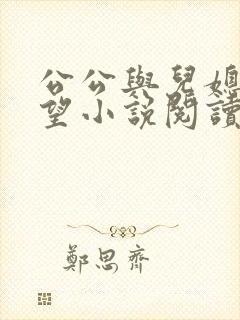 公公與兒媳
望小說閱讀
鄭思齊